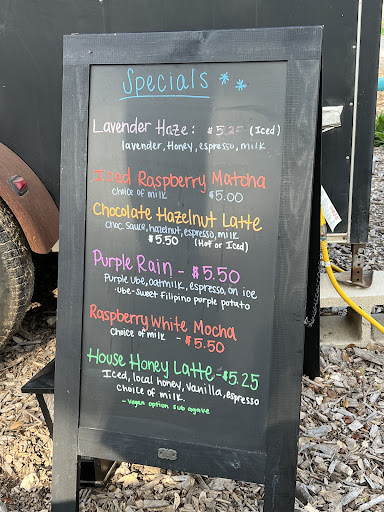 Specials
Lavender Haze: $5.25 (Iced)
lavender, Honey, espresso, milk
Iced Raspberry Matcha
choice of milk $5.00
Chocolate Hazelnut Latte
choc sauce, hazelnut, espresso, milk
$5.50 (Hot or Iced)
Purple Rain - $5.50
Purple Ube, oatmilk, espresso, on ice
·Ube-Sweet Filipino purple potato
Raspberry White Mocha
choice of milk - $5.50
House Honey Latte - $5.25
Iced, local honey, vanilla, espresso
choice of milk.
- vegan option sub agave